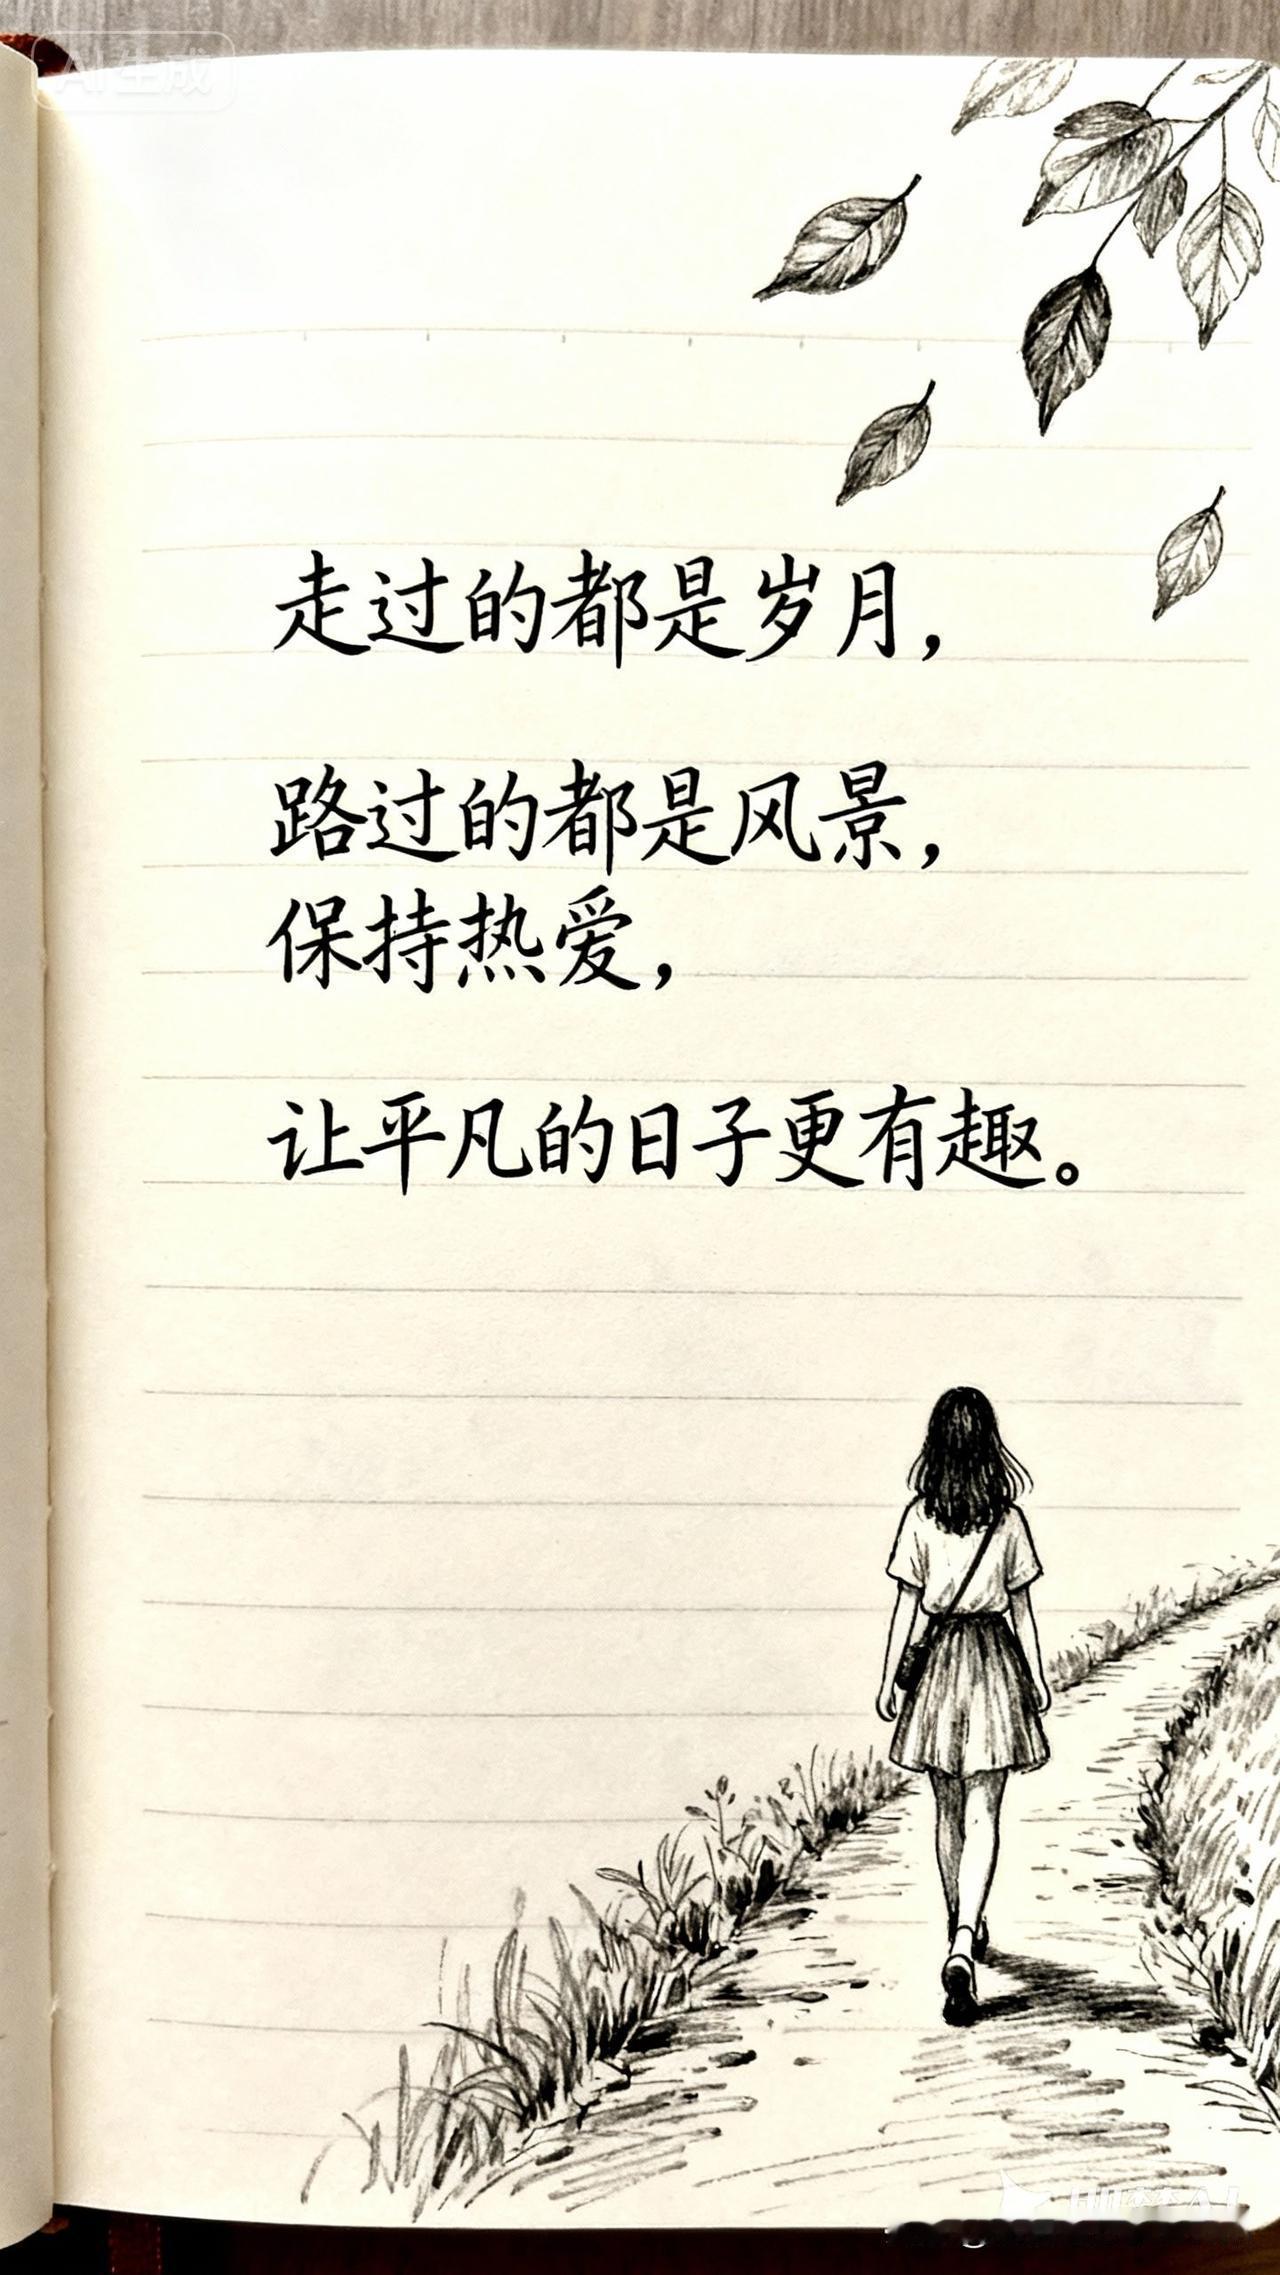 AI生成
走过的都是岁月，
路过的都是风景，
保持热爱，
让平凡的日子更有趣。